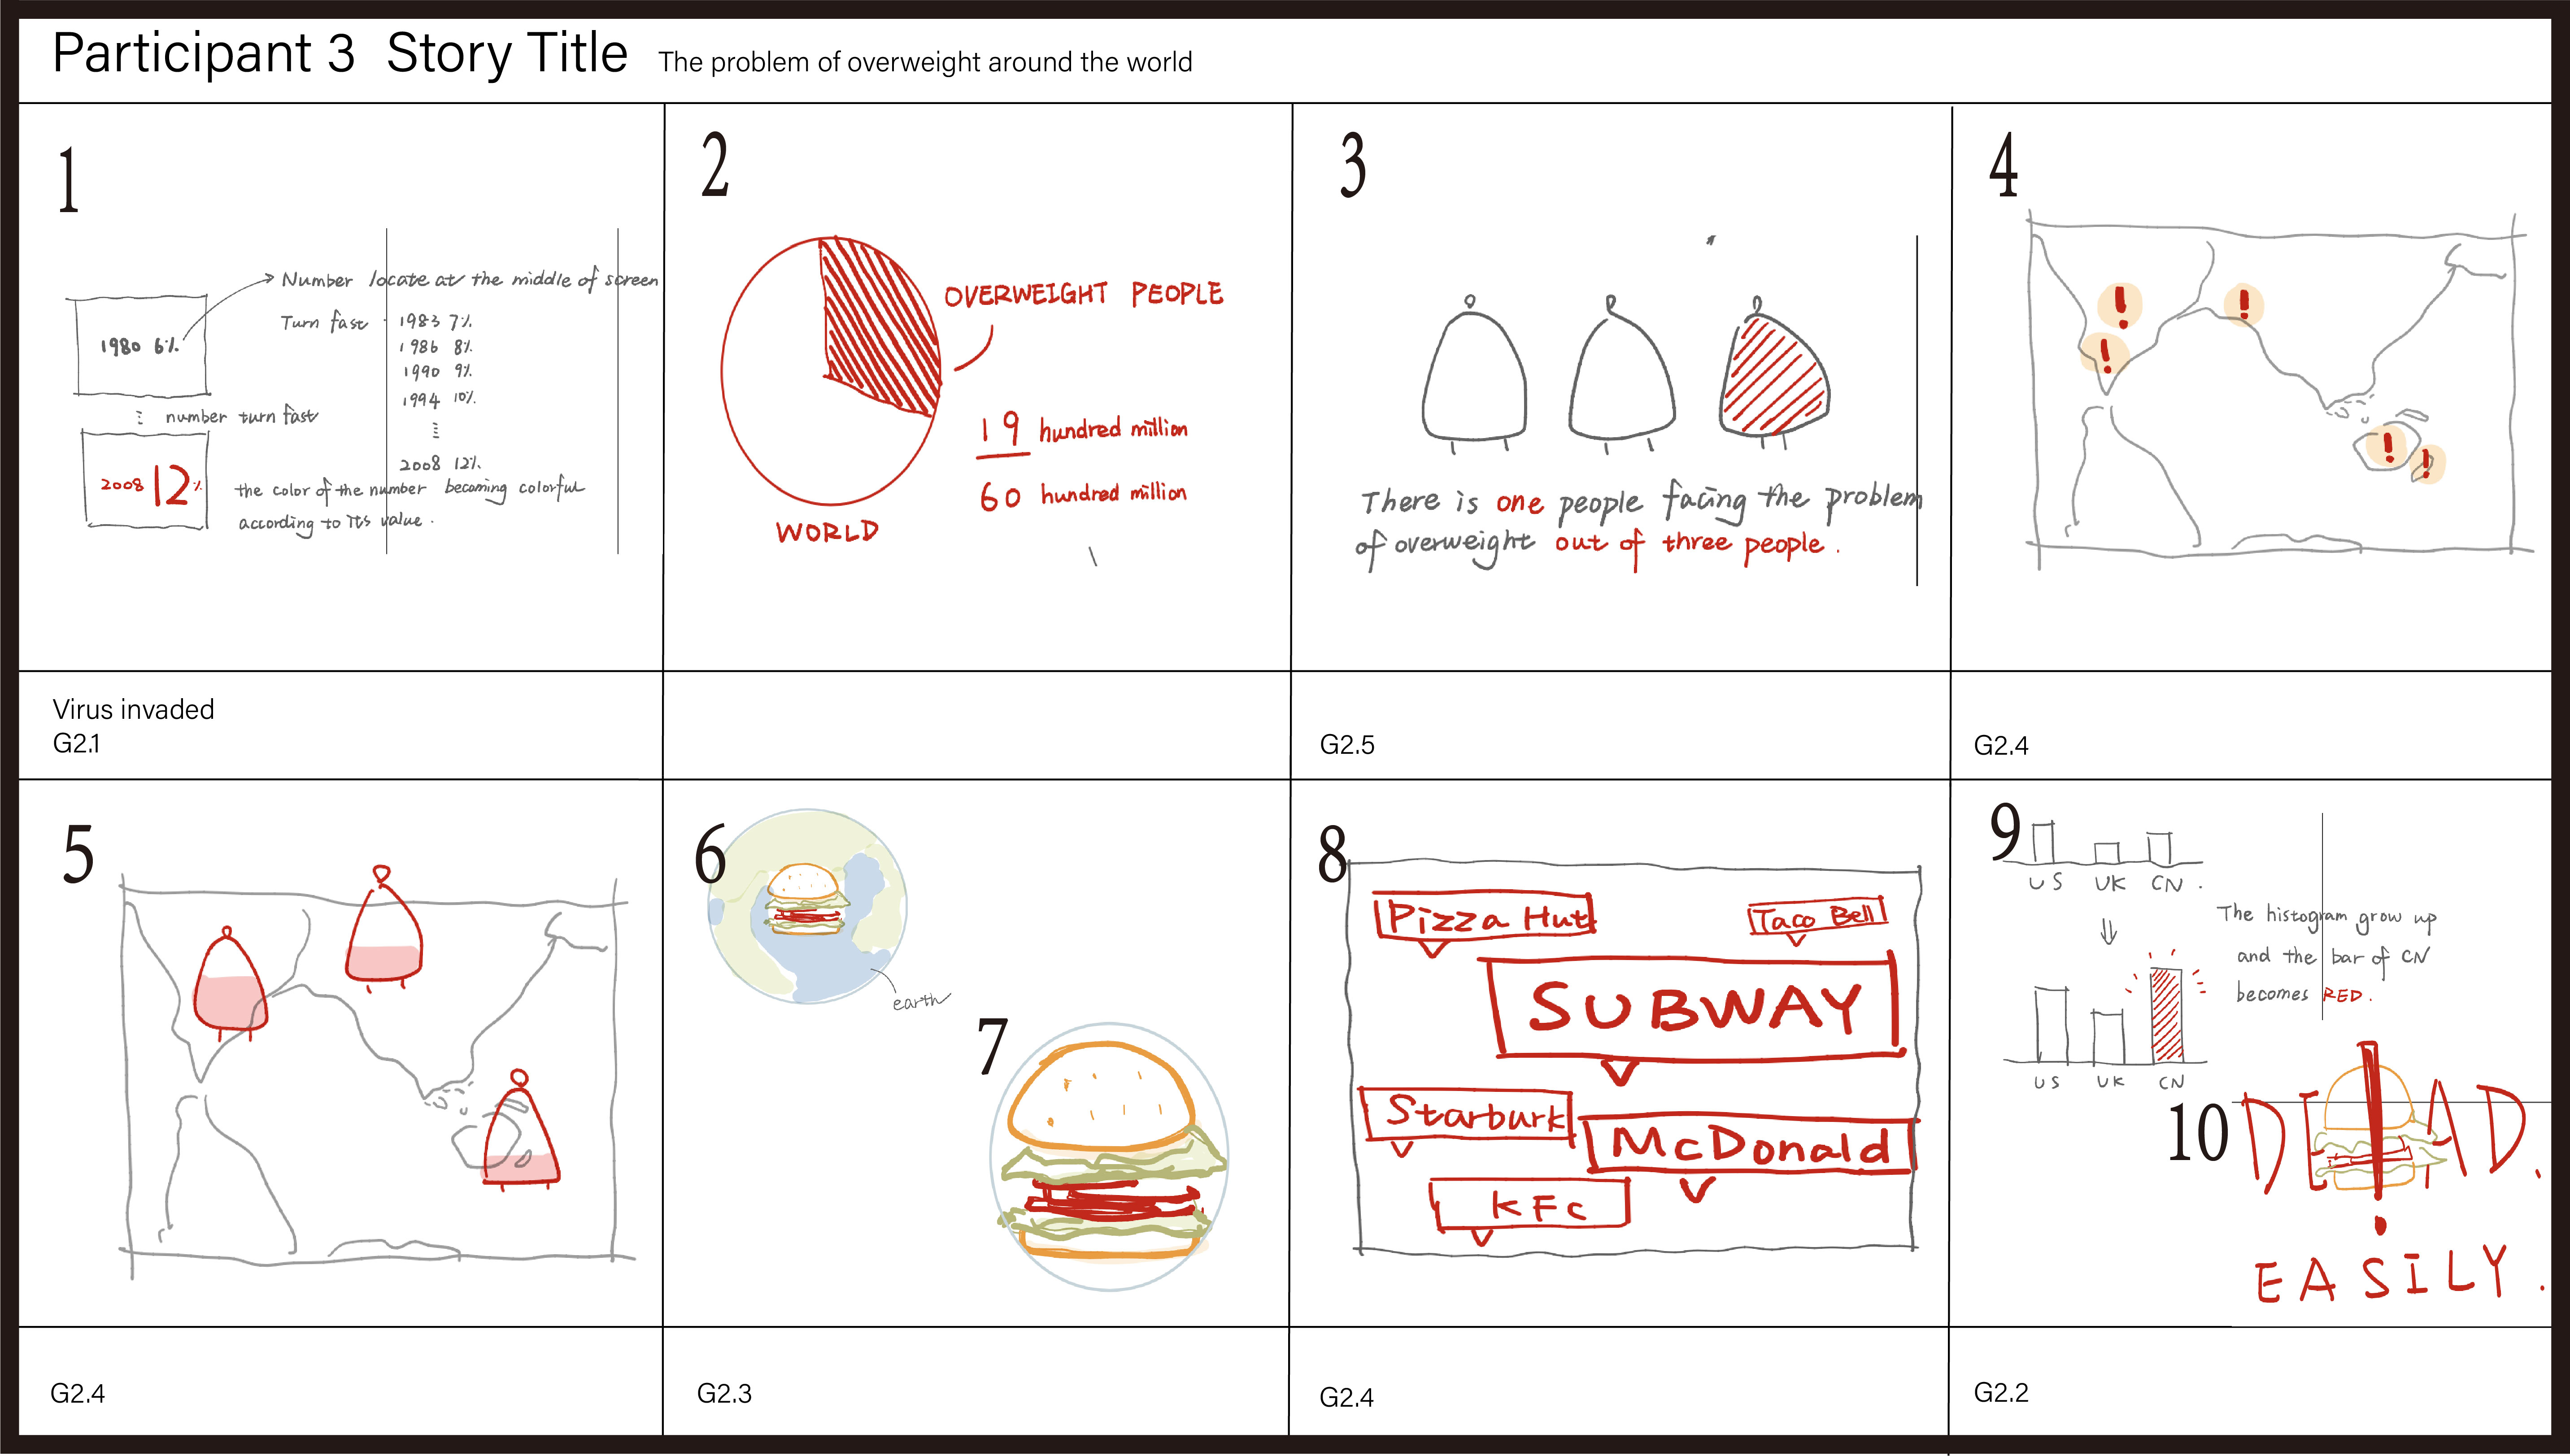 Participant 3 Story Title The problem of overweight around the world
1
1980 6%
Number locate at the middle of screen
Turn fast
1983 7%
1986 8%
1990 9%
1994 10%
2008 12%
number turn fast
2008 12%
the color of the number becoming colorful
according to its value.
Virus invaded
G2.1
2
OVERWEIGHT PEOPLE
19 hundred million
60 hundred million
WORLD
3
There is one people facing the problem
of overweight out of three people.
G2.5
4
!
!
!
!
!
G2.4
5
G2.4
6
earth
7
G2.3
8
Pizza Hut
Taco Bell
SUBWAY
Starburk
McDonald
KFc
G2.4
9
US UK CN.
The histogram grow up
and the bar of CN
becomes RED.
US UK CN
10
DE!AD.
EASILY.
G2.2